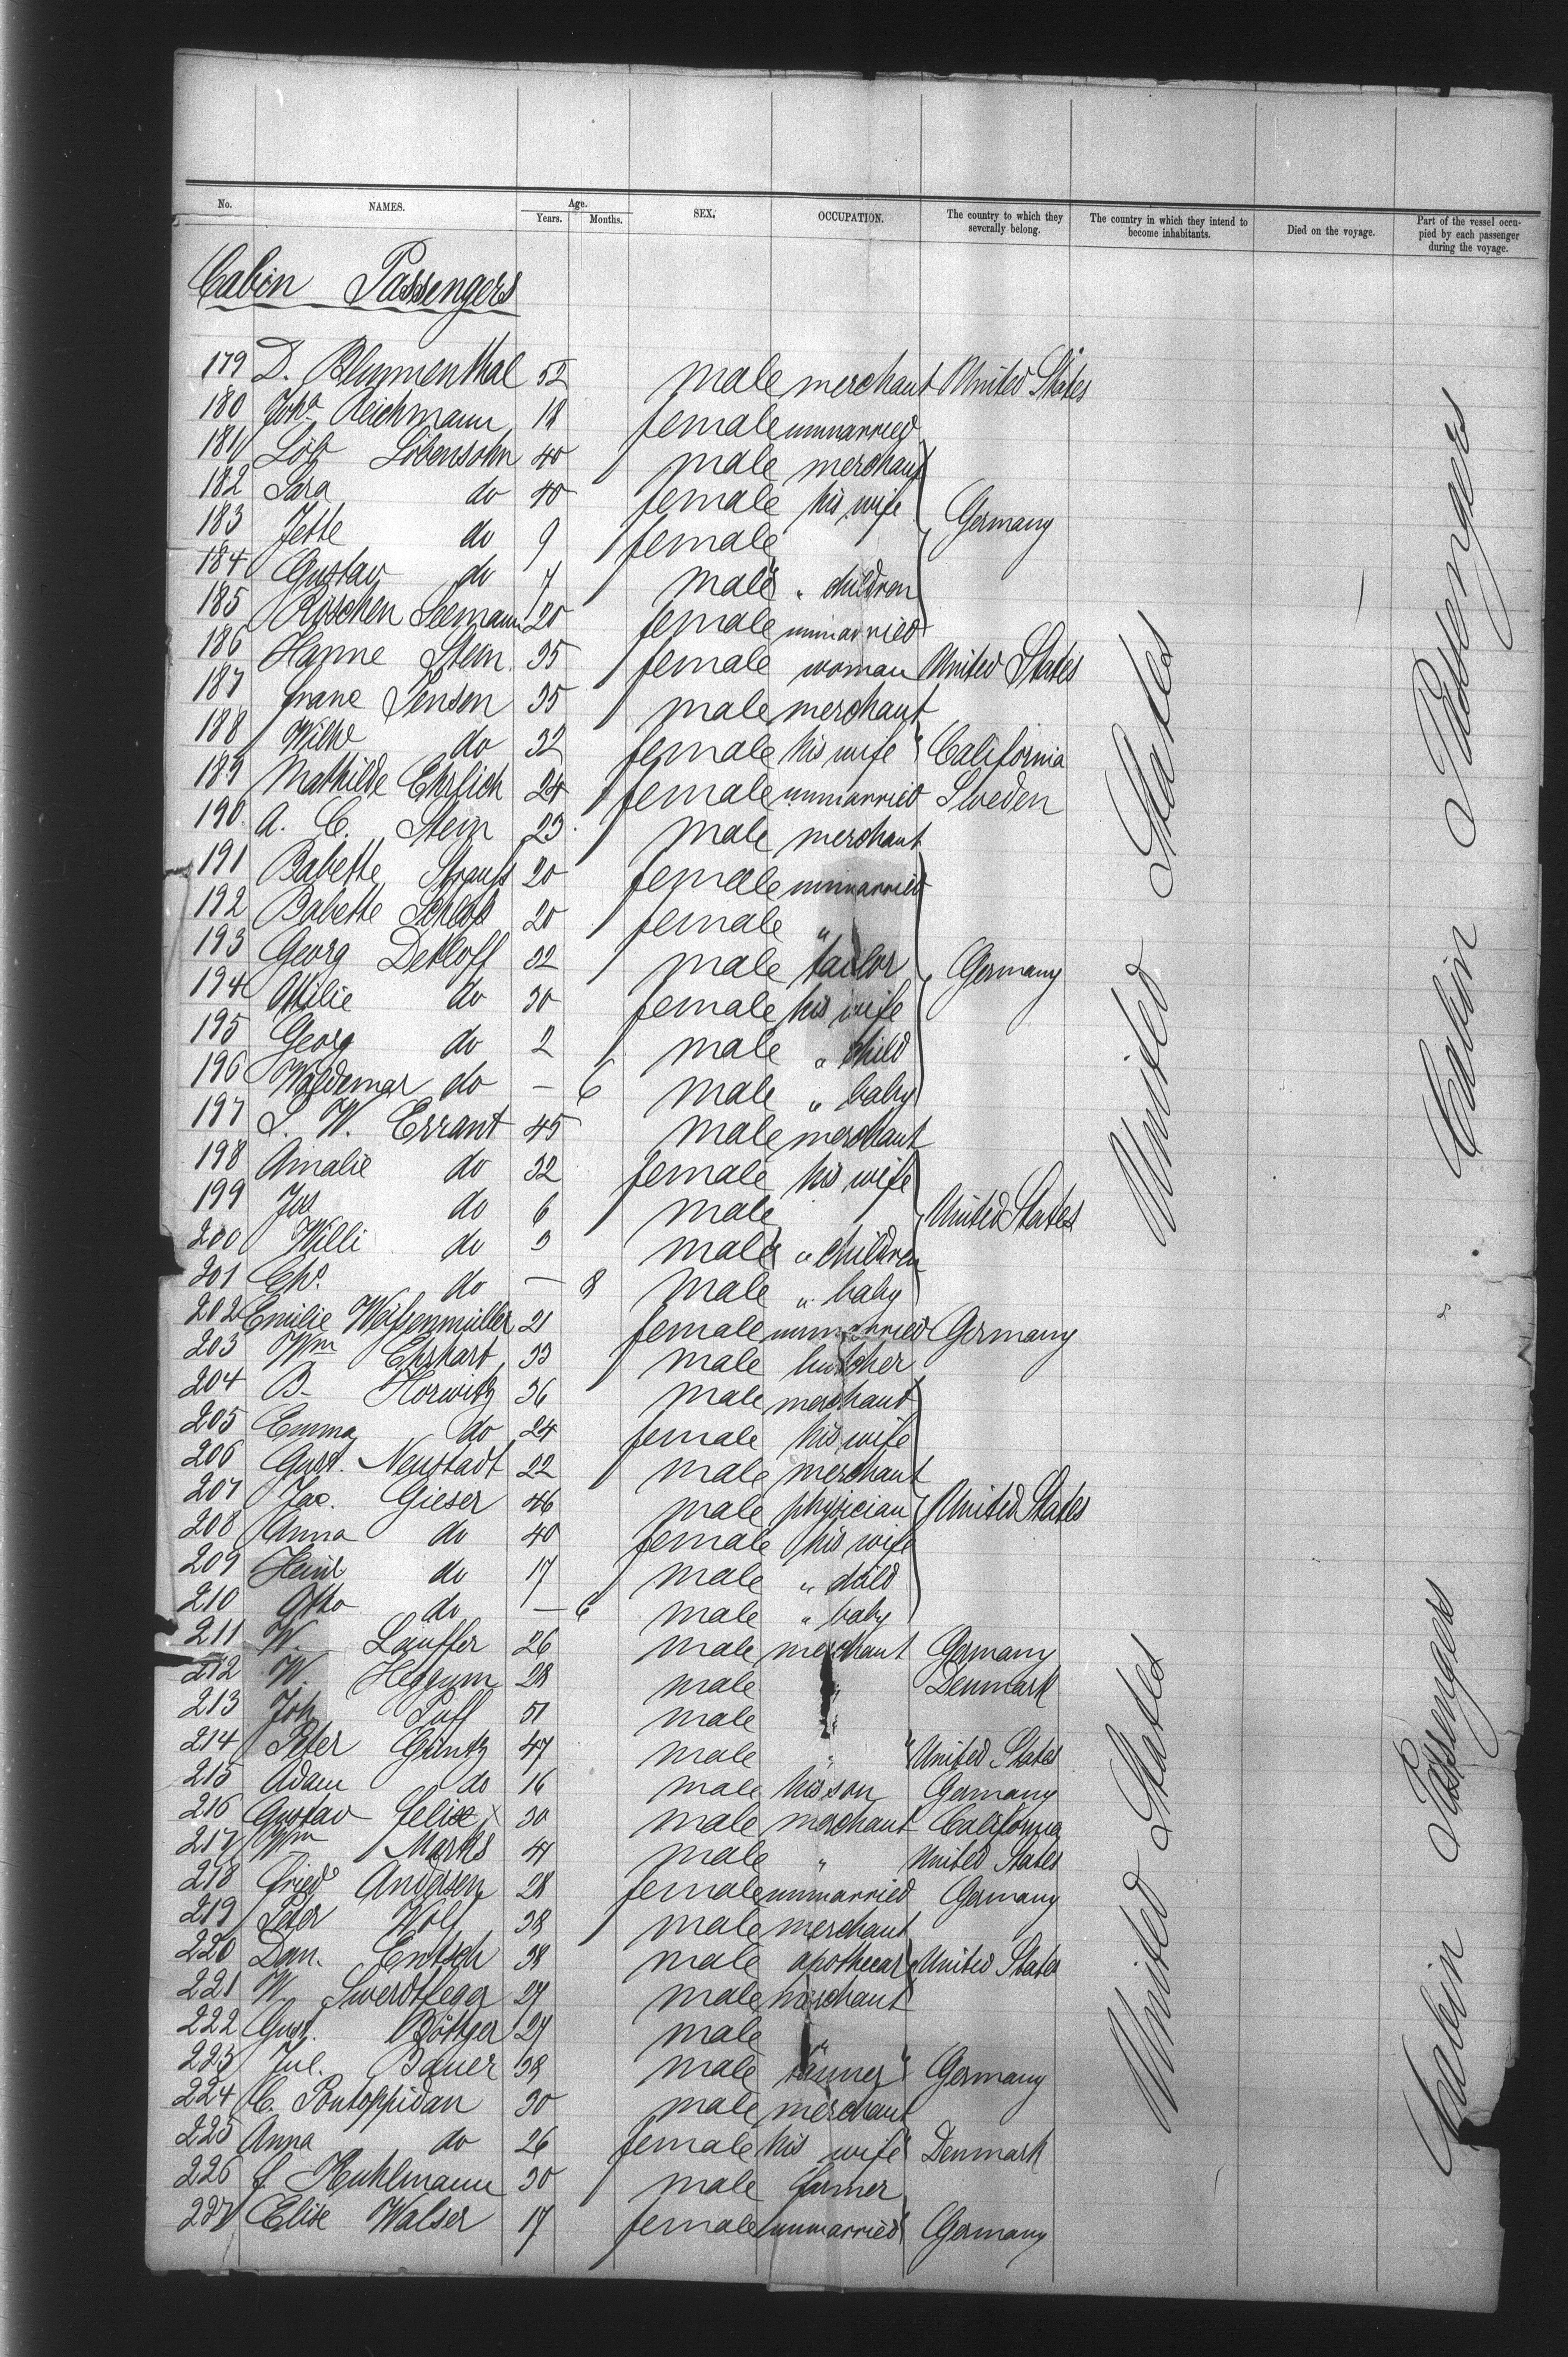 No. NAMES. Age. Years. Months. SEX. OCCUPATION. The country to which they severally belong. The country in which they intend to become inhabitants. Died on the voyage. Part of the vessel occupied by each passenger during the voyage.
Cabin Passengers
179 D. Blumenthal 52 male merchant United States
180 Joha Reichmann 18 female unmarried
181 Löb Löbensohn 40 male merchant
182 Sara do 40 female his wife Germany
183 Jette do 9 female
184 Gustav do 7 male " children
185 Röschen Seemann 20 female unmarried
186 Hanne Stern 35 female woman United States
187 Franc Jensen 35 male merchant
188 Wilhe do 32 female his wife " California
189 Mathilde Ehrlich 24 female unmarried Sweden
190 A. C. Stein 23 male merchant
191 Babette Strauß 20 female unmarried
192 Babette Schloß 20 female "
193 Georg Detloff 32 male tailor Germany
194 Ottilie do 30 female his wife
195 Georg do 2 male " child
196 Waldemar do — 6 male " baby
197 S. W. Errant 45 male merchant
198 Amalie do 32 female his wife
199 Jos do 6 male United States
200 Willi do 3 male " children
201 Chs. do — 8 male " baby
202 Emilie Weißenmüller 21 female unmarried Germany
203 Wm Ehrhart 33 male butcher
204 B. Horwitz 36 male merchant
205 Emma do 24 female his wife
206 Gust. Neustadt 22 male merchant
207 Jac. Gieser 46 male physician United States
208 Anna do 40 female his wife
209 do 17 male " child
210 Otto do — 6 male " baby
211 W. Lauffer 26 male merchant Germany
212 W Heggum 28 male " Denmark
213 Joh Puff 51 male "
214 Peter Güntz 47 male " " United States
215 Adam do 16 male his son Germany
216 Gustav Felix x 30 male merchant California
217 Wm Marks 41 male " United States
218 Fried Andersen 28 female unmarried Germany
219 Peter Wolf 38 male merchant
220 Dan. Entsch 38 male apothecar United States
221 W. Swerdfeger 27 male merchant
222 Gust. Böttger 27 male "
223 Jul. Bauer 38 male tanner " Germany
224 C. Pontoppidan 30 male merchant
225 Anna do 26 female his wife " Denmark
226 F Kuhlmann 30 male farmer
227 Elise Walser 17 female unmarried " Germany
United States
United States
Cabin Passengers
Cabin Passengers